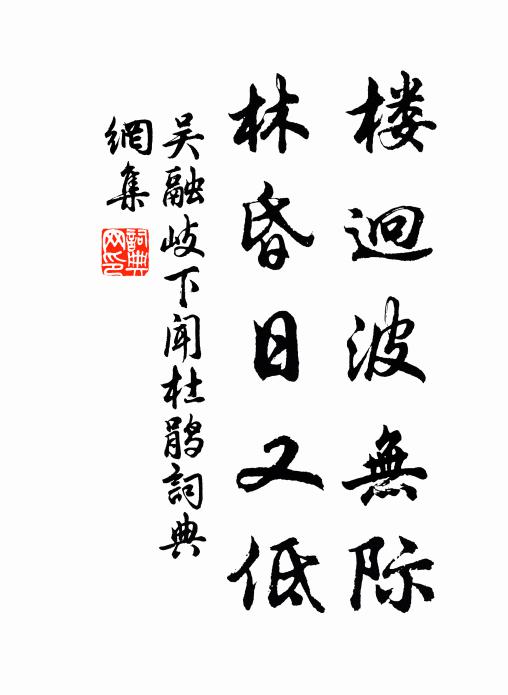 楼迥波無际
林昏日又低
吴融岐下闻杜鹃詞典
網集
詞典
网印